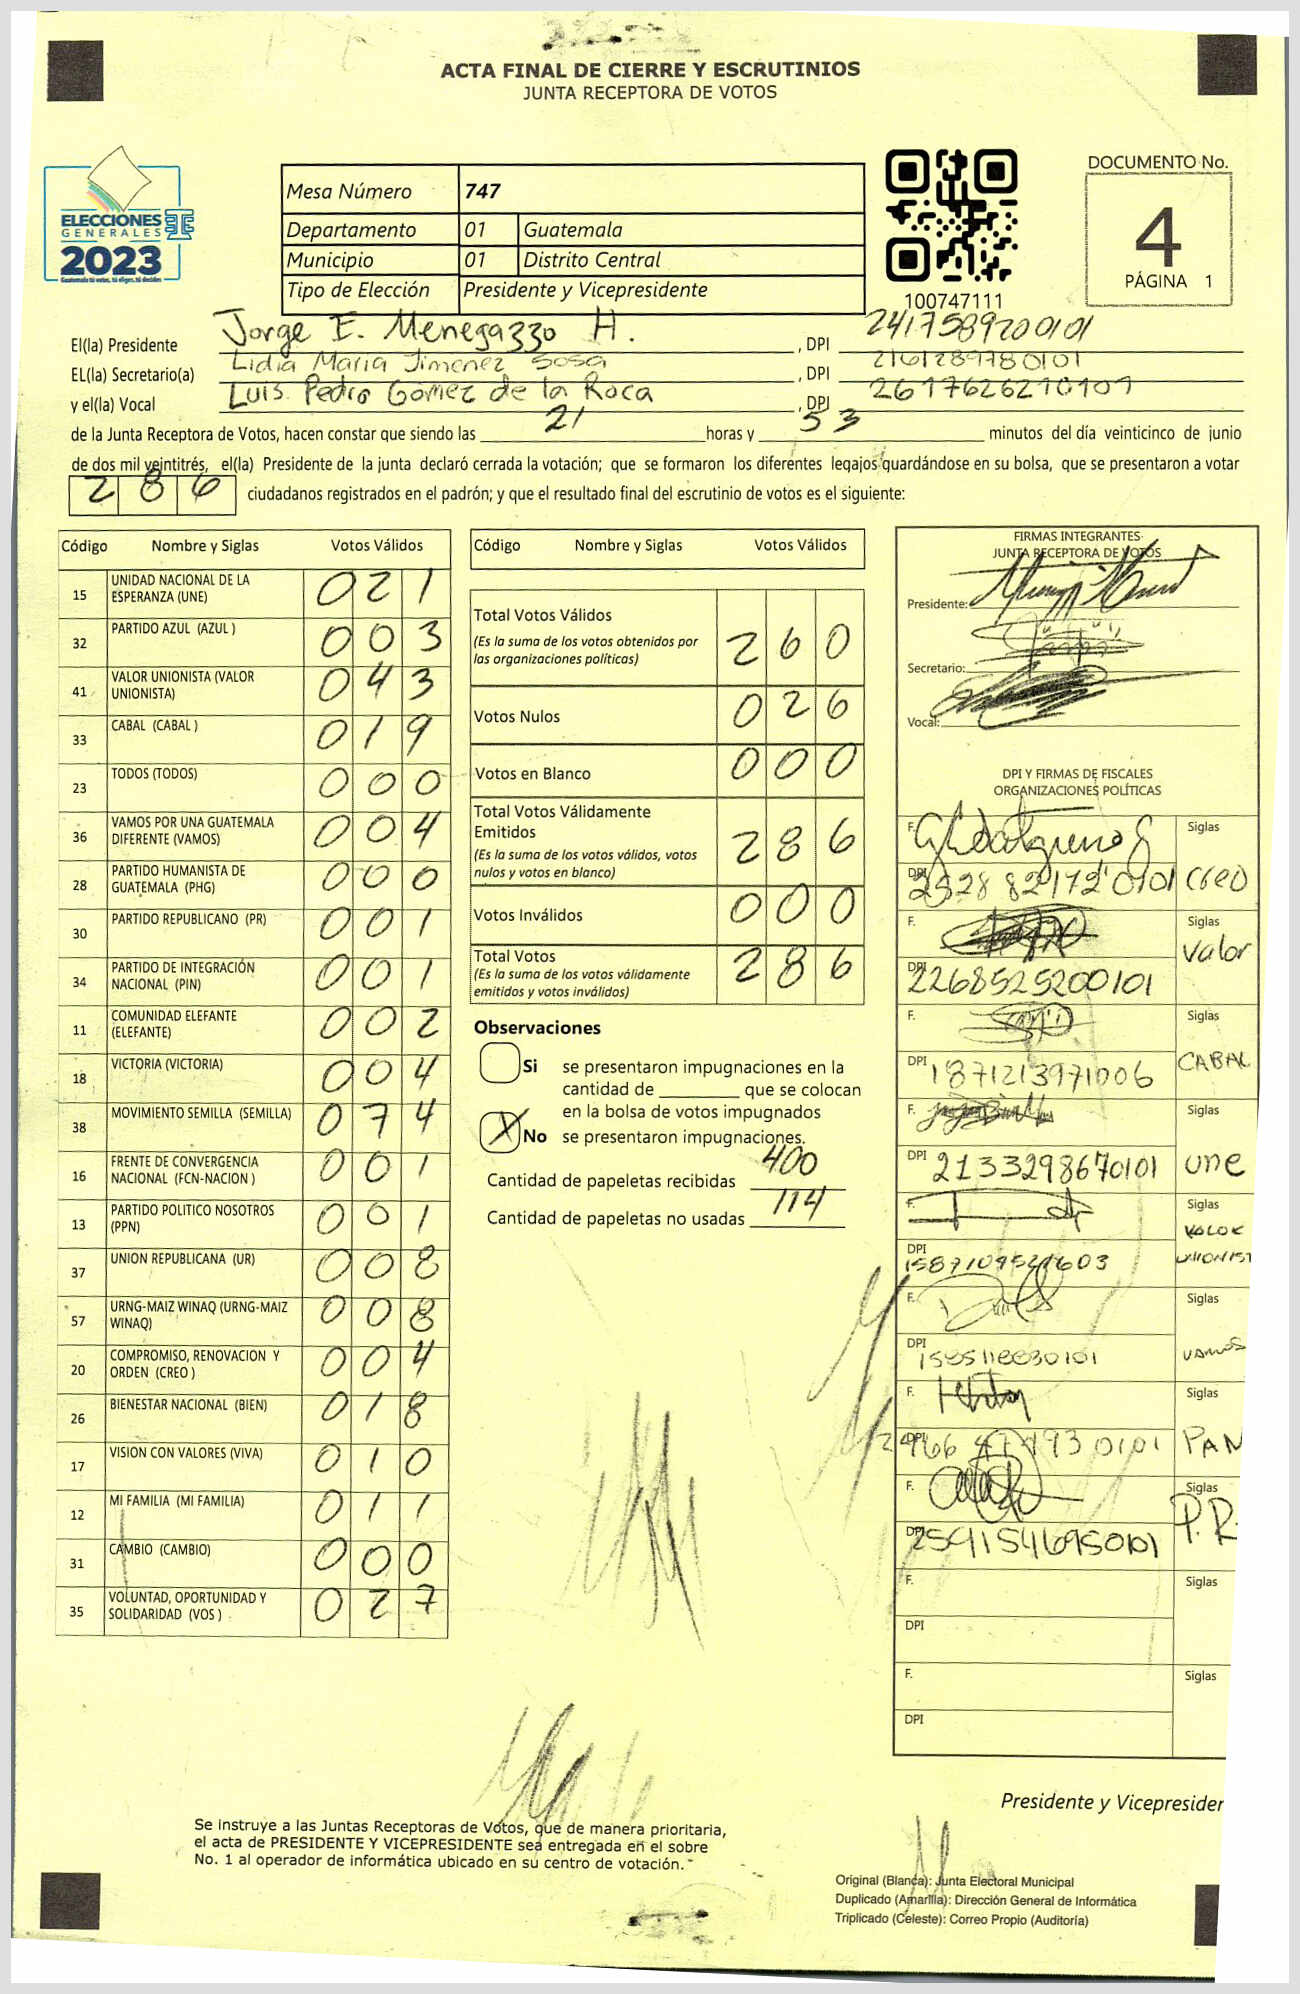 ACTA FINAL DE CIERRE Y ESCRUTINIOS
JUNTA RECEPTORA DE VOTOS
ELECCIONES
GENERALES
2023
Guatemala tú votas, tú eliges, tú decides
Mesa Número 747
Departamento 01 Guatemala
Municipio 01 Distrito Central
Tipo de Elección Presidente y Vicepresidente
100747111
DOCUMENTO No.
4
PÁGINA 1
El(la) Presidente Jorge E. Menegazzo H. , DPI 2417589200101
EL(la) Secretario(a) Lidia Maria Jimenez Sosa , DPI 2161289780101
y el(la) Vocal Luis Pedro Gómez de la Roca , DPI 2617626210101
de la Junta Receptora de Votos, hacen constar que siendo las 21 horas y 53 minutos del día veinticinco de junio
de dos mil veintitrés, el(la) Presidente de la junta declaró cerrada la votación; que se formaron los diferentes legajos guardándose en su bolsa, que se presentaron a votar
286 ciudadanos registrados en el padrón; y que el resultado final del escrutinio de votos es el siguiente:
Código Nombre y Siglas Votos Válidos
15 UNIDAD NACIONAL DE LA ESPERANZA (UNE) 021
32 PARTIDO AZUL (AZUL ) 003
41 VALOR UNIONISTA (VALOR UNIONISTA) 043
33 CABAL (CABAL ) 019
23 TODOS (TODOS) 000
36 VAMOS POR UNA GUATEMALA DIFERENTE (VAMOS) 004
28 PARTIDO HUMANISTA DE GUATEMALA (PHG) 000
30 PARTIDO REPUBLICANO (PR) 001
34 PARTIDO DE INTEGRACIÓN NACIONAL (PIN) 001
11 COMUNIDAD ELEFANTE (ELEFANTE) 002
18 VICTORIA (VICTORIA) 004
38 MOVIMIENTO SEMILLA (SEMILLA) 074
16 FRENTE DE CONVERGENCIA NACIONAL (FCN-NACION ) 001
13 PARTIDO POLITICO NOSOTROS (PPN) 001
37 UNION REPUBLICANA (UR) 008
57 URNG-MAIZ WINAQ (URNG-MAIZ WINAQ) 008
20 COMPROMISO, RENOVACION Y ORDEN (CREO ) 004
26 BIENESTAR NACIONAL (BIEN) 018
17 VISION CON VALORES (VIVA) 010
12 MI FAMILIA (MI FAMILIA) 011
31 CAMBIO (CAMBIO) 000
35 VOLUNTAD, OPORTUNIDAD Y SOLIDARIDAD (VOS ) 027
Código Nombre y Siglas Votos Válidos
Total Votos Válidos 260
(Es la suma de los votos obtenidos por
las organizaciones políticas)
Votos Nulos 026
Votos en Blanco 000
Total Votos Válidamente
Emitidos 286
(Es la suma de los votos válidos, votos
nulos y votos en blanco)
Votos Inválidos 000
Total Votos 286
(Es la suma de los votos válidamente
emitidos y votos inválidos)
Observaciones
Si se presentaron impugnaciones en la
cantidad de ________ que se colocan
en la bolsa de votos impugnados
X No se presentaron impugnaciones.
Cantidad de papeletas recibidas 400
Cantidad de papeletas no usadas 114
FIRMAS INTEGRANTES
JUNTA RECEPTORA DE VOTOS
Presidente:
Secretario:
Vocal:
DPI Y FIRMAS DE FISCALES
ORGANIZACIONES POLÍTICAS
F. Siglas
DPI 2528 82172 0101 Creo
F. Siglas
Valor
DPI 2268525200101
F. Siglas
DPI 1871213971006 CABAL
F. Siglas
DPI 2133298670101 une
F. Siglas
VALOR
DPI UNIONIST
F. Siglas
DPI VAMOS
F. Siglas
DPI PAN
F. Siglas
P.R.
DPI 2591546950101
F. Siglas
DPI
F. Siglas
DPI
Presidente y Vicepresiden
Se instruye a las Juntas Receptoras de Votos, que de manera prioritaria,
el acta de PRESIDENTE Y VICEPRESIDENTE sea entregada en el sobre
No. 1 al operador de informática ubicado en su centro de votación.
Original (Blanca): Junta Electoral Municipal
Duplicado (Amarilla): Dirección General de Informática
Triplicado (Celeste): Correo Propio (Auditoría)